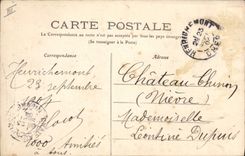 CARTE POSTALE
La Correspondance au recto n'est pas acceptée par tous les pays étrangers
(Se renseigner à la Poste)
Correspondance
Adresse
HENRICHEMONT
Henrichemont
23 septembre
Château-Chinon
(Nièvre)
Mademoiselle
Léontine Dupuis
1000 Amitiés
à tous